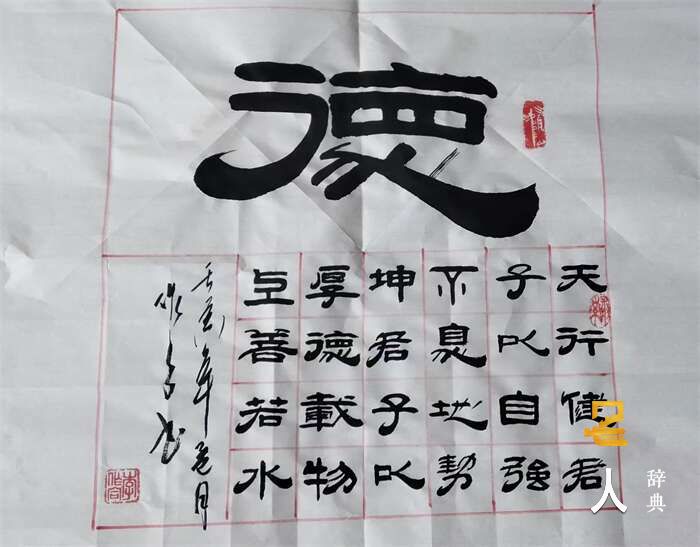 德
天行健君
子以自强
不息地勢
坤君子以
厚德載物
上善若水
壬寅年 月
名人
辞典